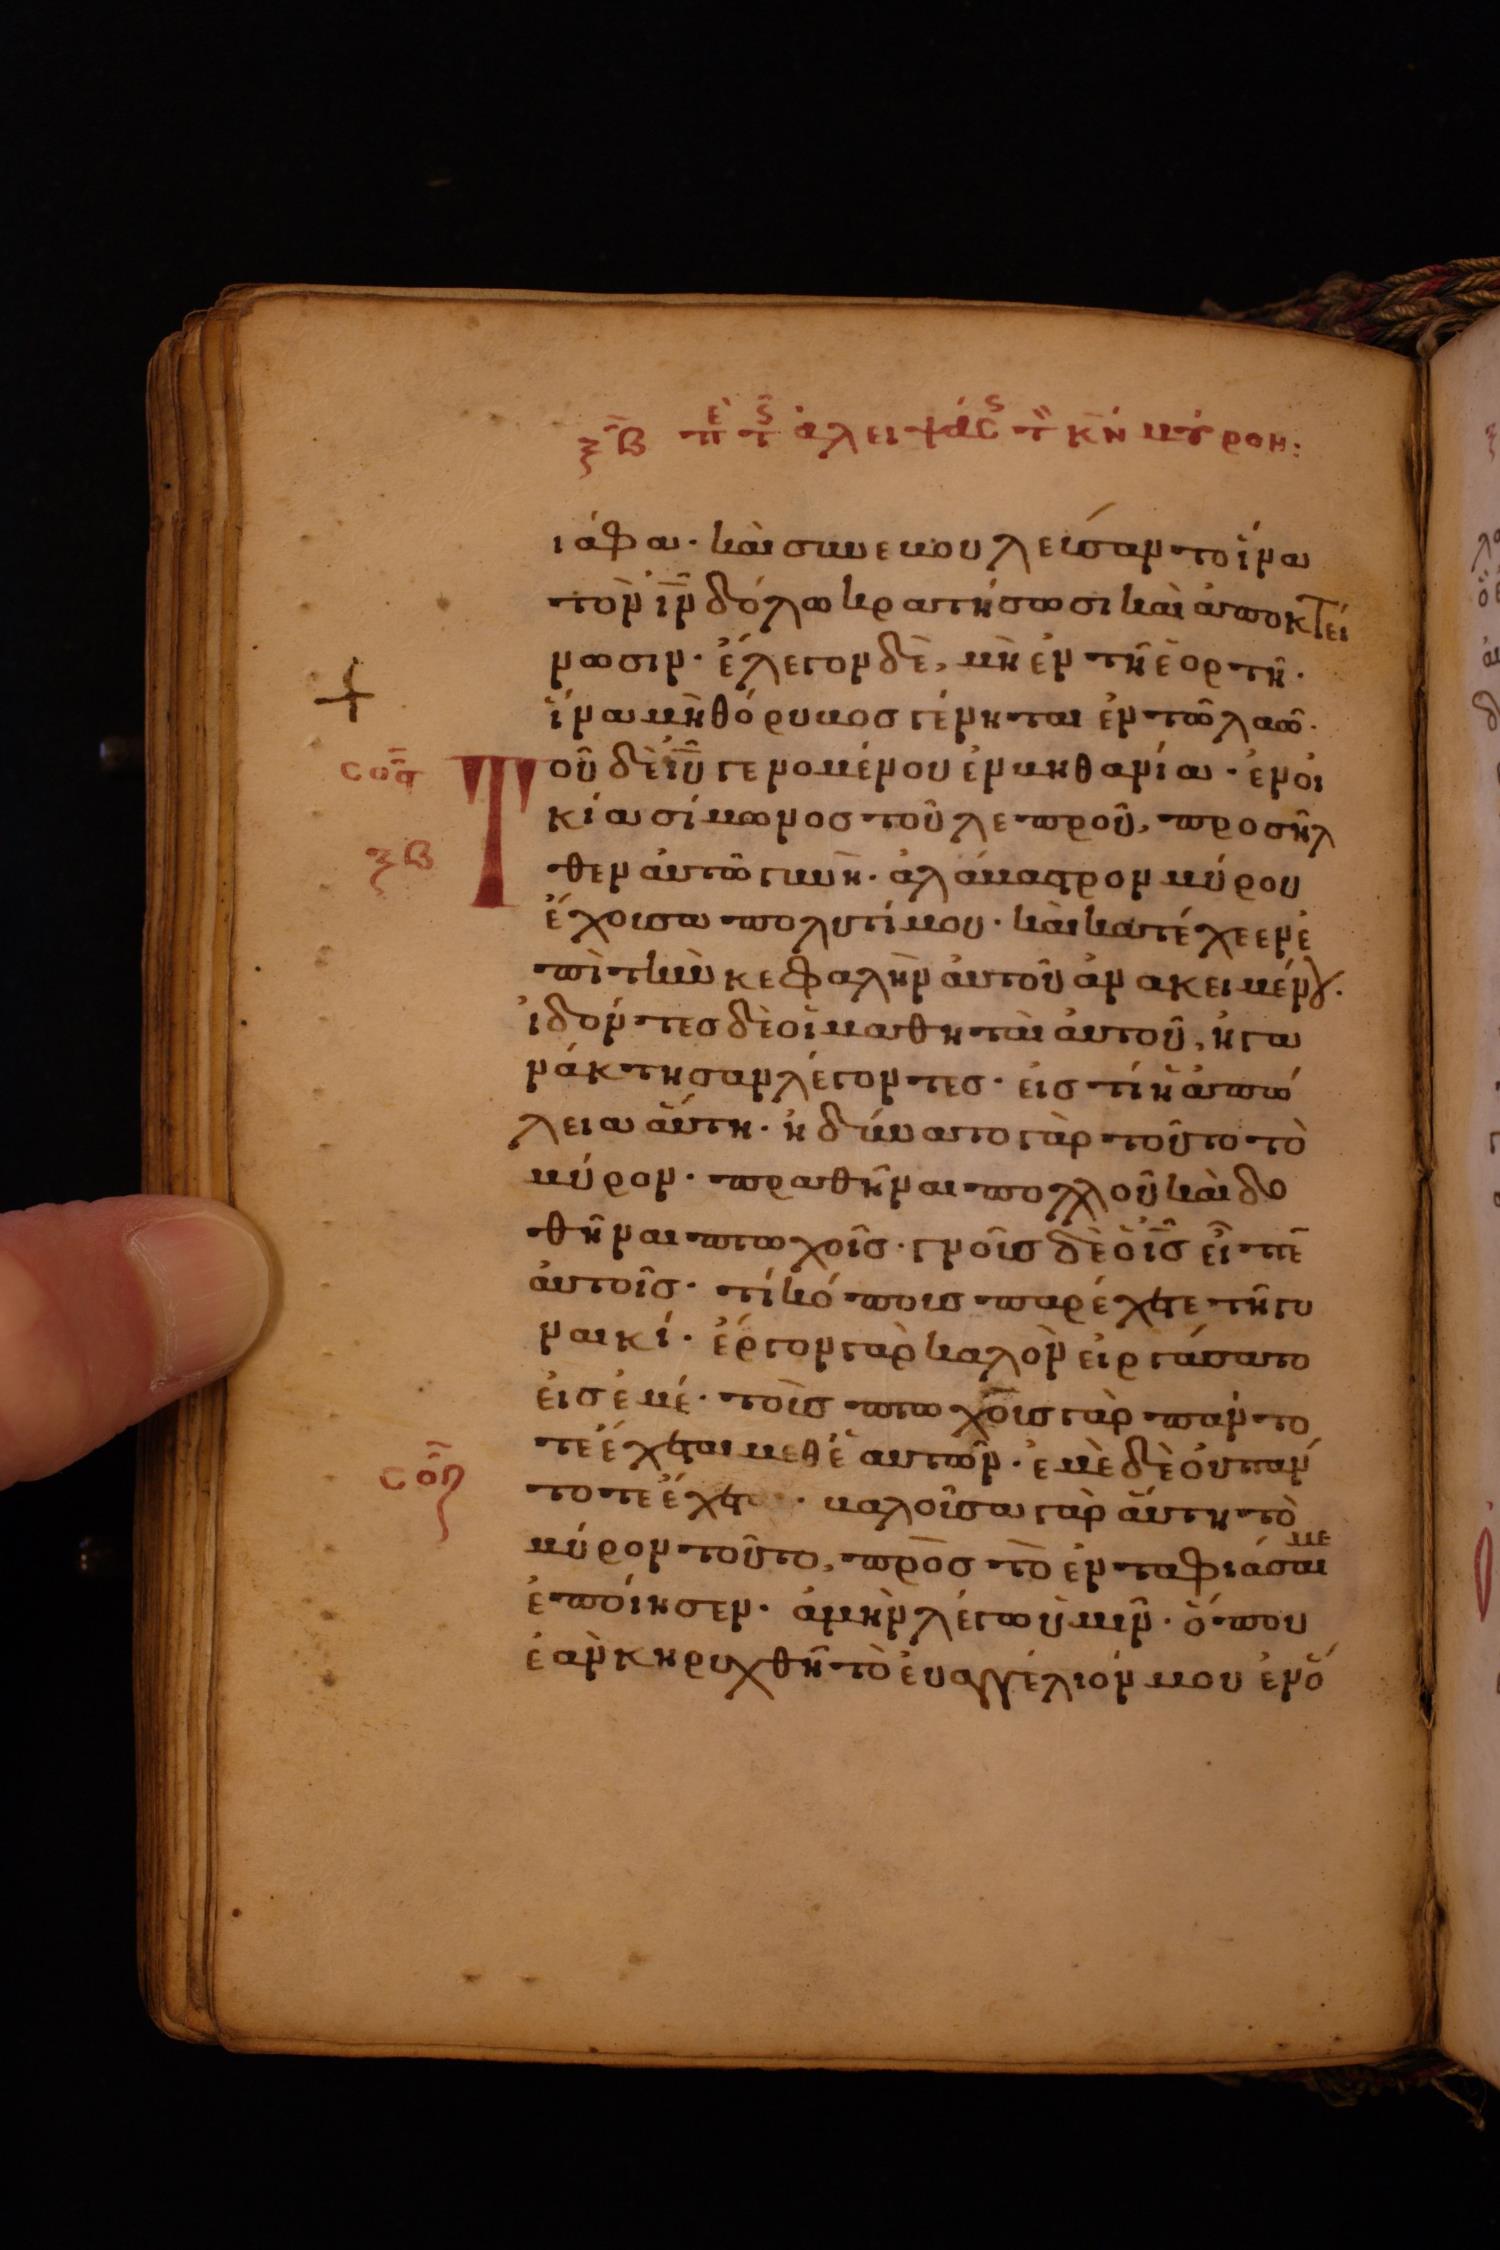 ξβ πε τς ἀλειψάς τ κν μύρον:
ϊάφα· καὶ συνεβουλεύσαντο ἵνα
τὸν ιν δόλω κρατήσωσι καὶ ἀποκτεί
νωσιν· ἔλεγον δὲ, μὴ ἐν τῆ ἑορτῆ·
ἵνα μὴ θόρυβος γένηται ἐν τῶ λαῶ·
σος Τοῦ δὲ ιυ γενομένου ἐν βηθανία· ἐν οἰ
κία σίμωνος τοῦ λεπροῦ, προσῆλ
ξβ
θεν αὐτῶ γυνὴ· ἀλάβαστρον μύρου
ἔχουσα πολυτίμου· καὶ κατέχεεν ἐ
πὶ τὴν κεφαλὴν αὐτοῦ ἀνακειμένου·
ἰδόντες δὲ οἱ μαθηταὶ αὐτοῦ, ἠγα
νάκτησαν λέγοντες· εἰς τί ἡ ἀπώ
λεια αὕτη· ἠδύνατο γὰρ τοῦτο τὸ
μύρον· πραθῆναι πολλοῦ καὶ δο
θῆναι πτωχοῖς· γνοῦς δὲ ὁ ις εἶπε
αὐτοῖς· τί κόπους παρέχετε τῆ γυ
ναικί· ἔργον γὰρ καλὸν εἰργάσατο
εἰς ἐμέ· τοὺς πτωχοὺς γὰρ πάντο
τε ἔχεται μεθ ἑαυτῶν· ἐμὲ δὲ οὐ πάν
σοη
τοτε ἔχε · βαλοῦσα γὰρ αὕτη τὸ
μύρον τοῦτο, πρὸς τὸ ἐνταφιάσαι με
ἐποίησεν· ἀμὴν λέγω ὑμῖν· ὅπου
ἐὰν κηρυχθῆ τὸ εὐαγγέλιόν μου ἐν ὅ